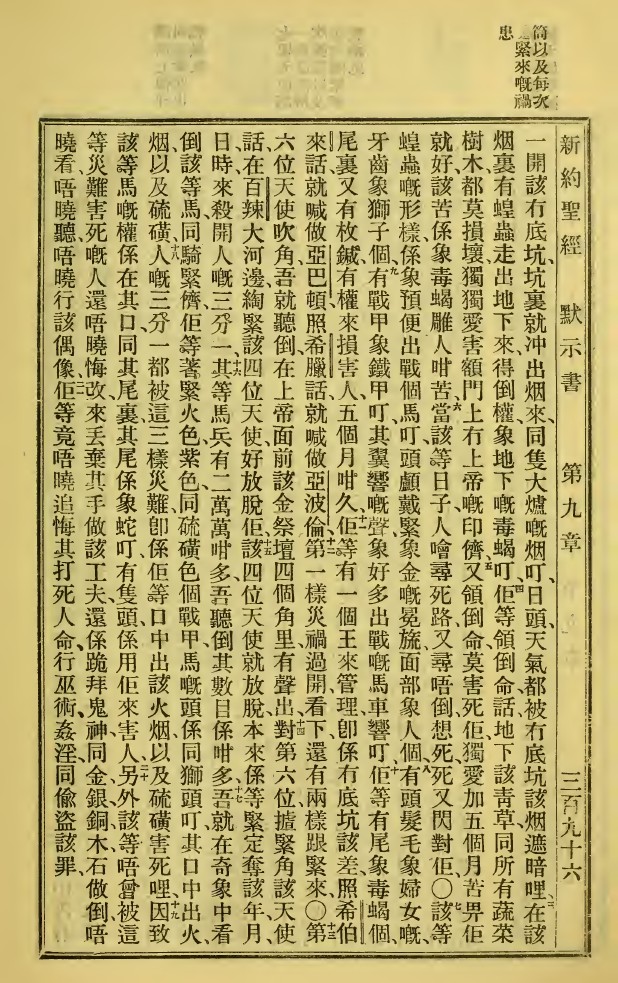 筒以及每次
緊來嘅禍
患
新約聖經 默示書 第九章 三百九十六
一開該冇底坑、坑裏就冲出烟來、同隻大爐嘅烟叮、日頭、天氣都被冇底坑該烟遮暗哩、三在該
烟裏有蝗蟲走出地下來、得倒權、象地下嘅毒蝎叮、四佢等領倒命話、地下該靑草同所有蔬菜
樹木都莫損壞、獨獨愛害額門上冇上帝嘅印儕、五又領倒命、莫害死佢、獨愛加五個月苦畀佢
就好、該苦係象毒蝎雕人咁苦、六當該等日子、人噲尋死路、又尋唔倒、想死、死又閃對佢〇七該等
蝗蟲嘅形樣、係象預便出戰個馬叮、頭顱戴緊象金嘅冕旒、面部象人個、八有頭髮毛象婦女嘅、
牙齒象獅子個、九有戰甲象鐵甲叮、其翼響嘅聲象好多出戰嘅馬車響叮、十佢等有尾象毒蝎個、
尾裏又有枚鍼、有權來損害人、五個月咁久、十一佢等有一個王來管理、卽係冇底坑該差、照希伯
來話就喊做亞巴頓、照希臘話就喊做亞波倫、十二第一樣災禍過開、看下還有兩樣跟緊來〇十三第
六位天使吹角、吾就聽倒在上帝面前該金祭壇四個角里有聲出、十四對第六位揸緊角該天使
話、在百辣大河邊綯緊該四位天使、好放脫佢、十五該四位天使就放脫、本來係等緊定奪該年、月、
日、時、來殺開人嘅三分一、十六其等馬兵有二萬萬咁多、吾聽倒其數目係咁多、十七吾就在奇象中看
倒該等馬同騎緊儕、佢等著緊火色、紫色、同硫磺色個戰甲、馬嘅頭係同獅頭叮、其口中出火、
烟、以及硫磺、十八人嘅三分一都被這三樣災難、卽係佢等口中出該火烟以及硫磺害死哩、十九因致
該等馬嘅權係在其口同其尾裏、其尾係象蛇叮、有隻頭、係用佢來害人、二十另外該等唔曾被這
等災難害死嘅人、還唔曉悔改、來丢棄其手做該工夫、還係跪拜鬼神、同金銀銅木石做倒、唔
曉看、唔曉聽、唔曉行該偶像、佢等竟唔曉追悔其打死人命、行巫術、姦淫、同偷盜該罪、